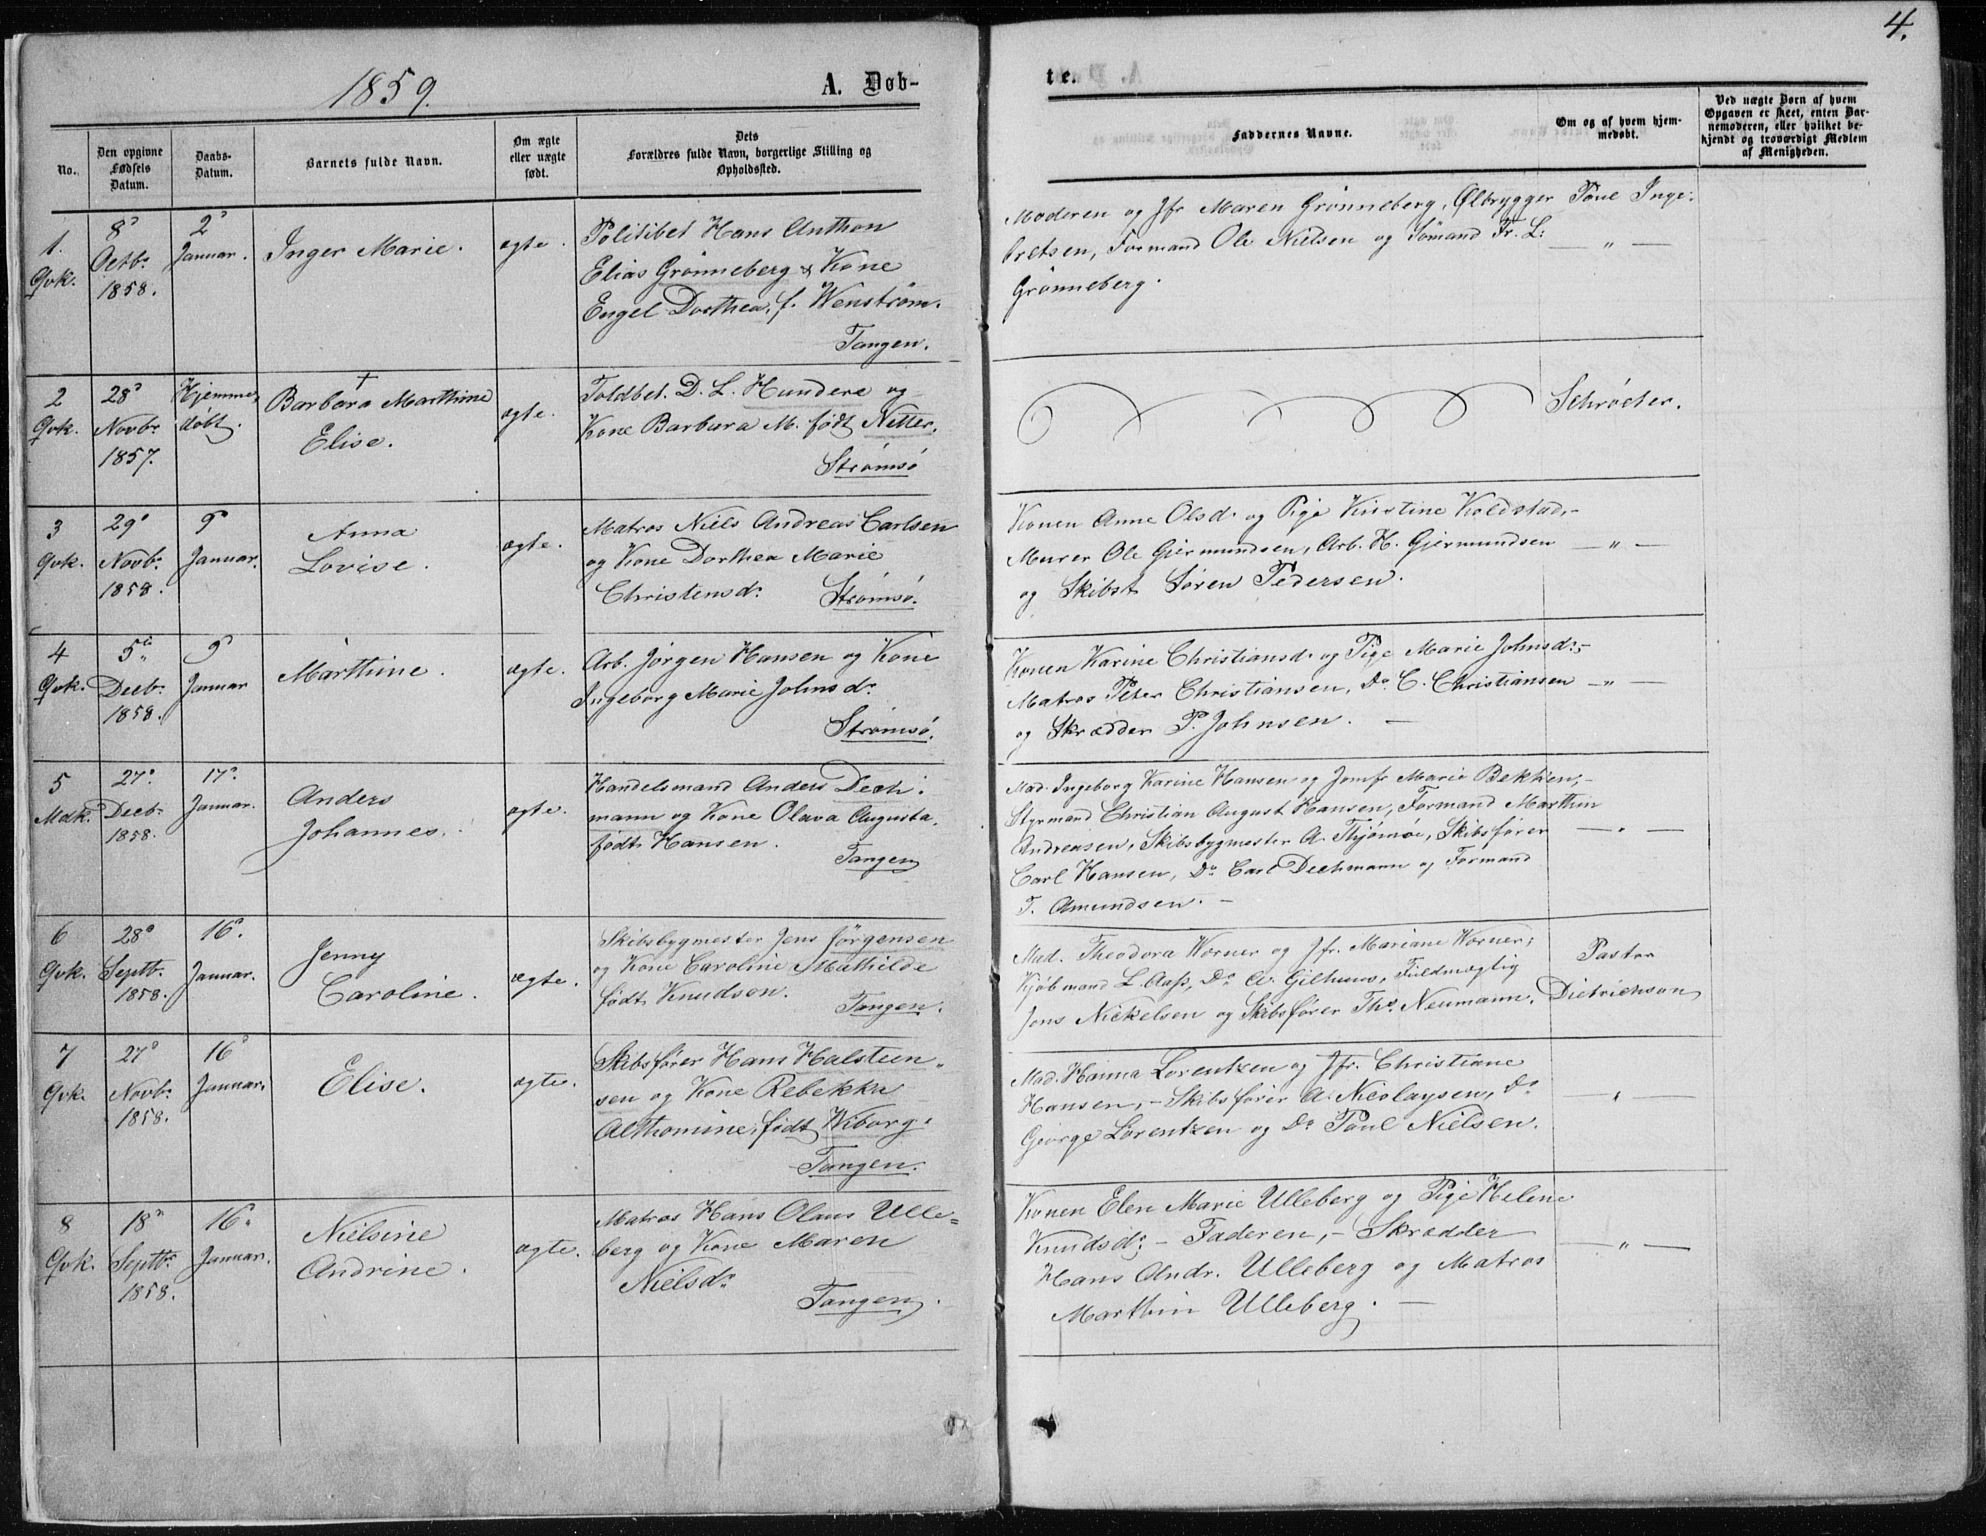 4.
1859.
A. Døb-
te.
No.
Den opgivne
Fødsels
Datum.
Daabs-
Datum.
Barnets fulde Navn.
Om ægte
eller uægte
født.
Dets
Forældres fulde Navn, borgerlige Stilling og
Opholdssted.
Faddernes Navne.
Om og af hvem hjem-
medøbt.
Ved uægte Børn af hvem
Opgaven er skeet, enten Bar-
nemoderen, eller hvilket be-
kjendt og troværdigt Medlem
af Menigheden.
1.
Qvk.
8
Octbr
1858.
2
Januar.
Inger Marie.
ægte.
Politibet Hans Anthon
Elias Grønneberg & Kone
Engel Dorthea, f. Wenstrøm.
Tangen.
Moderen og Jfr Maren Grønneberg, Ølbrygger Poul Inge-
bretsen, Formand Ole Nielsen og Sømand Fr. L:
Grønneberg.
— " —
2
Qvk.
28
Novbr
1857.
Hjemme
døbt.
†
Barbara Marthine
Elise.
ægte.
Toldbet. D. L. Hundere og
Kone Barbara M. født Nitter,
Strømsø
Schrøeter.
3
Qvk.
29
Novbr.
1858.
9
Januar.
Anna
Lovise.
ægte.
Matros Niels Andreas Carlsen
og Kone Dorthea Marie
Christensdr
Strømsø.
Konen Anne Olsdr og Pige Kirstine Koldstad,-
Murer Ole Gjermundsen, Arb. H. Gjermundsen
og Skibst Søren Pedersen.
— " —
4
Qvk.
5
Decbr.
1858.
9
Januar
Marthine.
ægte.
Arb. Jørgen Hansen og Kone
Ingeborg Marie Johnsdr
Strømsø.
Konen Karine Christiansdr og Pige Marie Johnsdr,-
Matros Peter Christiansen, Do C. Christiansen
og Skrædder P. Johnsen. —
— " —
5
Mdk.
27
Decbr
1858.
17
Januar.
Anders
Johannes.
ægte.
Handelsmand Anders Dech-
mann og Kone Olava Augusta,
født Hansen.
Tangen
Mad. Ingeborg Karine Hansen og Jomfr Marie Bekken,-
Styrmand Christian August Hansen, Formand Marthin
Andreasen, Skibsbygmester A. Thjømøe, Skibsfører
Carl Hansen, Do Carl Dechmann og Formand
T. Amundsen. —
— " —
6
Qvk.
28
Septbr.
1858.
16
Januar.
Jenny
Caroline.
ægte.
Skibsbygmester Jens Jørgensen
og Kone Caroline Mathilde
født Knudson.
Tangen.
Mad. Theodora Wørner og Jfr. Mariane Wørner,
Kjøbmand L. Aass, Do A. Gilhuus, Fuldmægtig
Jens Nickelsen og Skibsfører Ths Neumann.
Pastor
Dietrichson
7
Qvk.
27
Novbr
1858.
16
Januar.
Elise.
ægte.
Skibsfører Hans Halsteen-
sen og Kone Rebekka
Althomine, født Wiborg.
Tangen.
Mad. Hanna Lorentzen og Jfr. Christiane
Hansen, - Skibsfører A. Nicolaysen, Do
George Lorentzen og Do Poul Nielsen.
— " —
8
Qvk.
18
Septbr
1858.
16
Januar.
Nielsine
Andrine.
ægte.
Matros Hans Olaus Ulle-
berg og Kone Maren
Nielsdr
Tangen.
Konen Elen Marie Ulleberg og Pige Helene
Knudsdr - Faderen, - Skrædder
Hans Andr. Ulleberg og Matros
Marthin Ulleberg. —
— " —